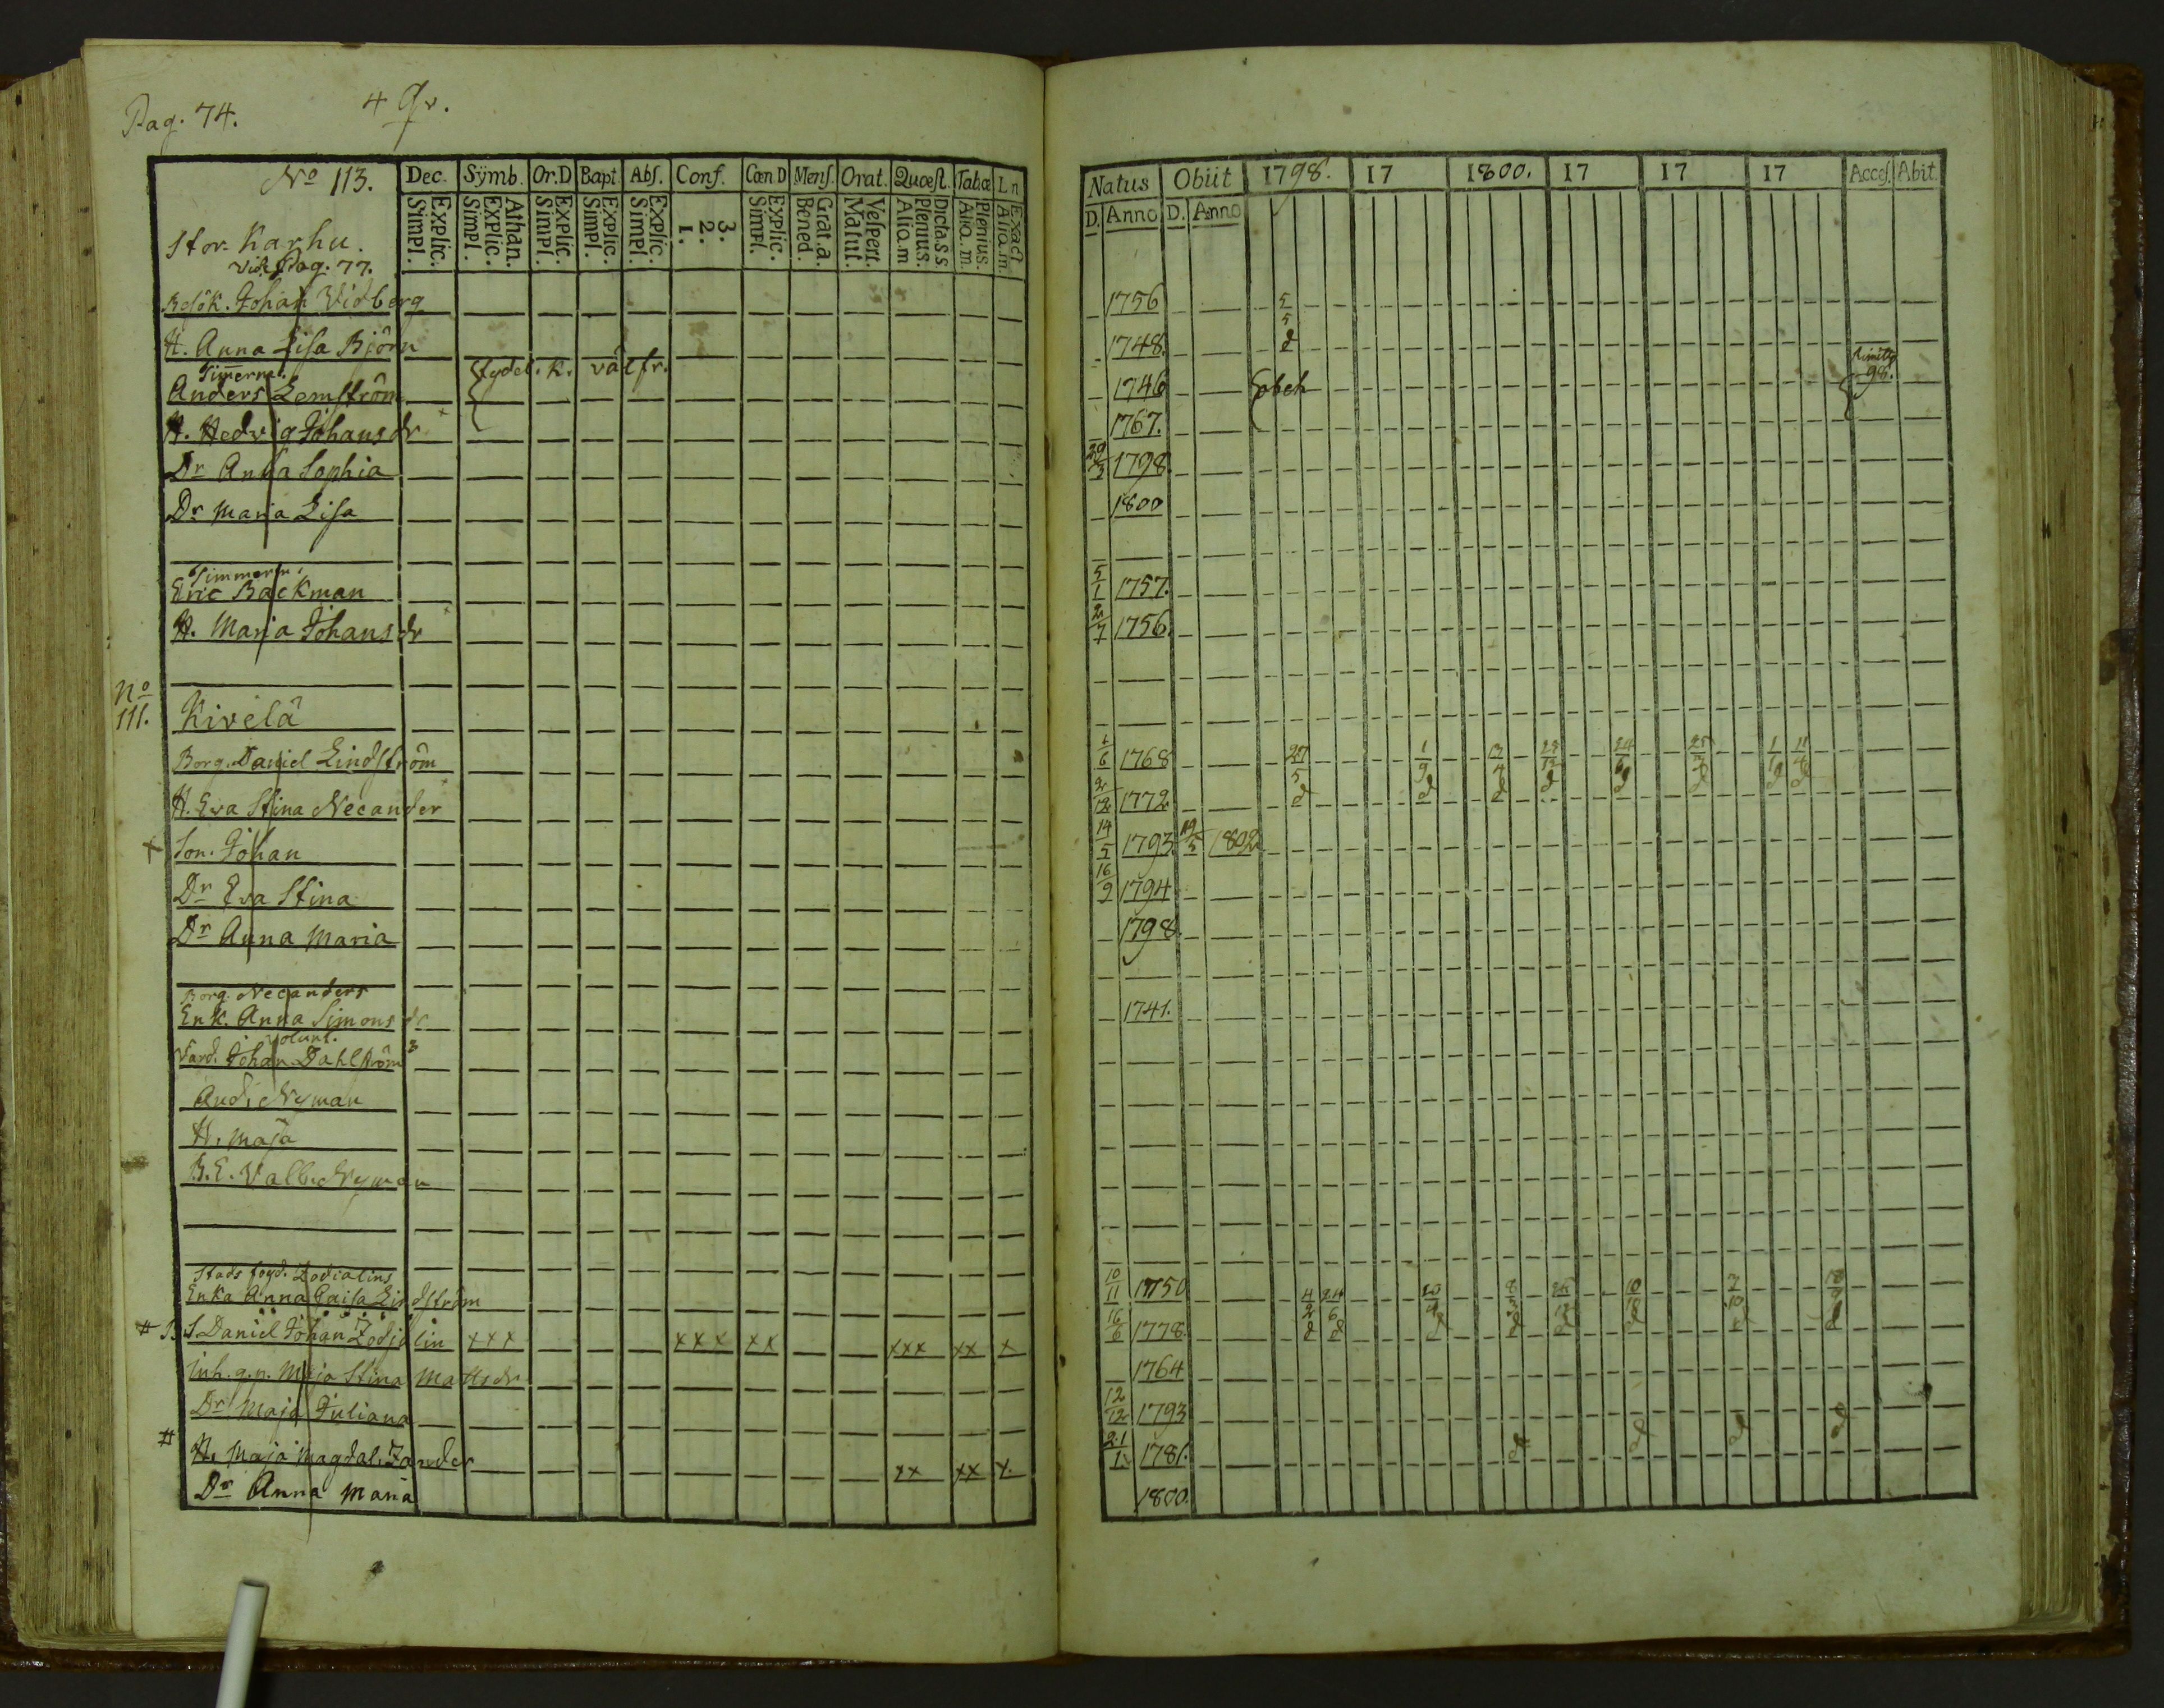 Pag. 74. 4 Qv.
No 113. Dec. Symb. Or.D Bapt. Abs. Conf. Cœn D Mens. Orat. Quœst. Tabœ L n
Simpl. Explic. Simpl. Explic. Athan. Simpl. Explic. Simpl. Explic. Simpl. Explic. 1. 2. 3. Simpl. Explic. Bened. Grat. a. Matut. Vespert. Alia.m Plenius. Dicta.s s. Alia.m. Plenius. Alia.m. Exact
Stor. Karhu.
vide Pag. 77.
Besök. Johan Vidberg
H. Anna Lisa Björn
Timmerm. stydel. k. välfr.
Anders Lemström
H. Hedvig Johansdr
Dr Anna Sophia
Dr Maria Lisa
Timmerm.
Eric Backman
H. Maria Johansdr
No
111. Kivelä
Borg. Daniel Lindström
H. Eva Stina Necander
Son. Johan
Dr Eva Stina
Dr Anna Maria
Borg. Necanders
Enk. Anna Simonsdr
Volunt.
Vard. Johan Dahlström 3
And. Nyman
H. Maja
B. E. Valb. Nyman
Stads fogd. Zodialins
Enka Anna Caisa Lindström
S. Daniel Johan Zodjalin xxx xxx xx xxx xx x
Inh. g.p. Maja Stina Mattsdr
Dr Maja Juliana
H. Maja Magdal. Zander xx xx x.
Dr Anna Maria
Natus Obiit 1798. 17 1800. 17 17 17 Acces. Abit.
D. Anno D. Anno
1756 5/5
1748. d
1746 98.
1767.
1798
1800
5/1 1757.
2/7 1756.
1/6 1768 27/5 1/9
2/12 1772 d d d d d d d d
14/5 1793 19/5 1802
16/9 1794
1798
1741.
10/11 1750 4/2 24/6
16/6 1778. d d d d d d d d
1764
12/12 1793
21/1 1781. d d d d
1800.